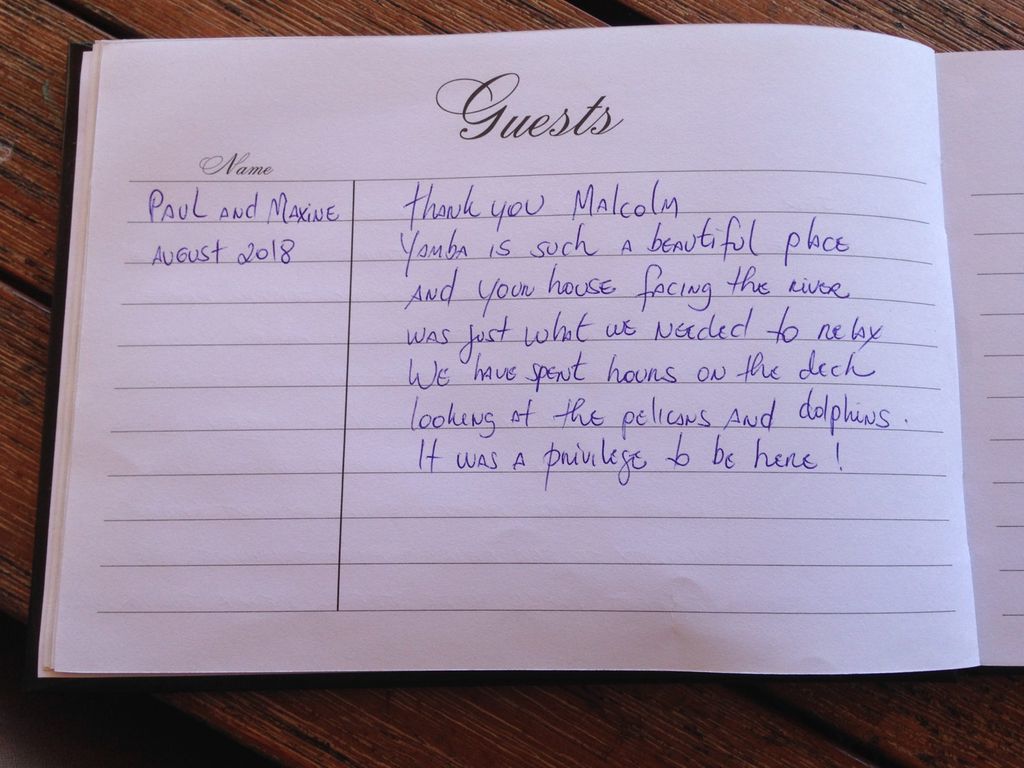 Guests
Name
Paul and Maxine
August 2018
Thank you Malcolm
Yamba is such a beautiful place
and your house facing the river
was just what we needed to relax
We have spent hours on the deck
looking at the pelicans and dolphins.
It was a privilege to be here!